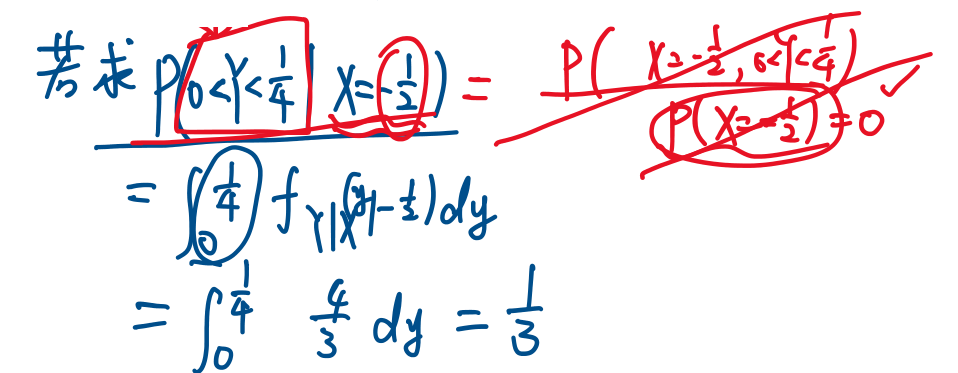 若求 P(0<Y<1/4 | X=-1/2) = P(X=-1/2, 0<Y<1/4) / P(X=-1/2)=0 ✓
= ∫_0^{1/4} f_{Y|X}(y|-1/2) dy
= ∫_0^{1/4} 4/3 dy = 1/3